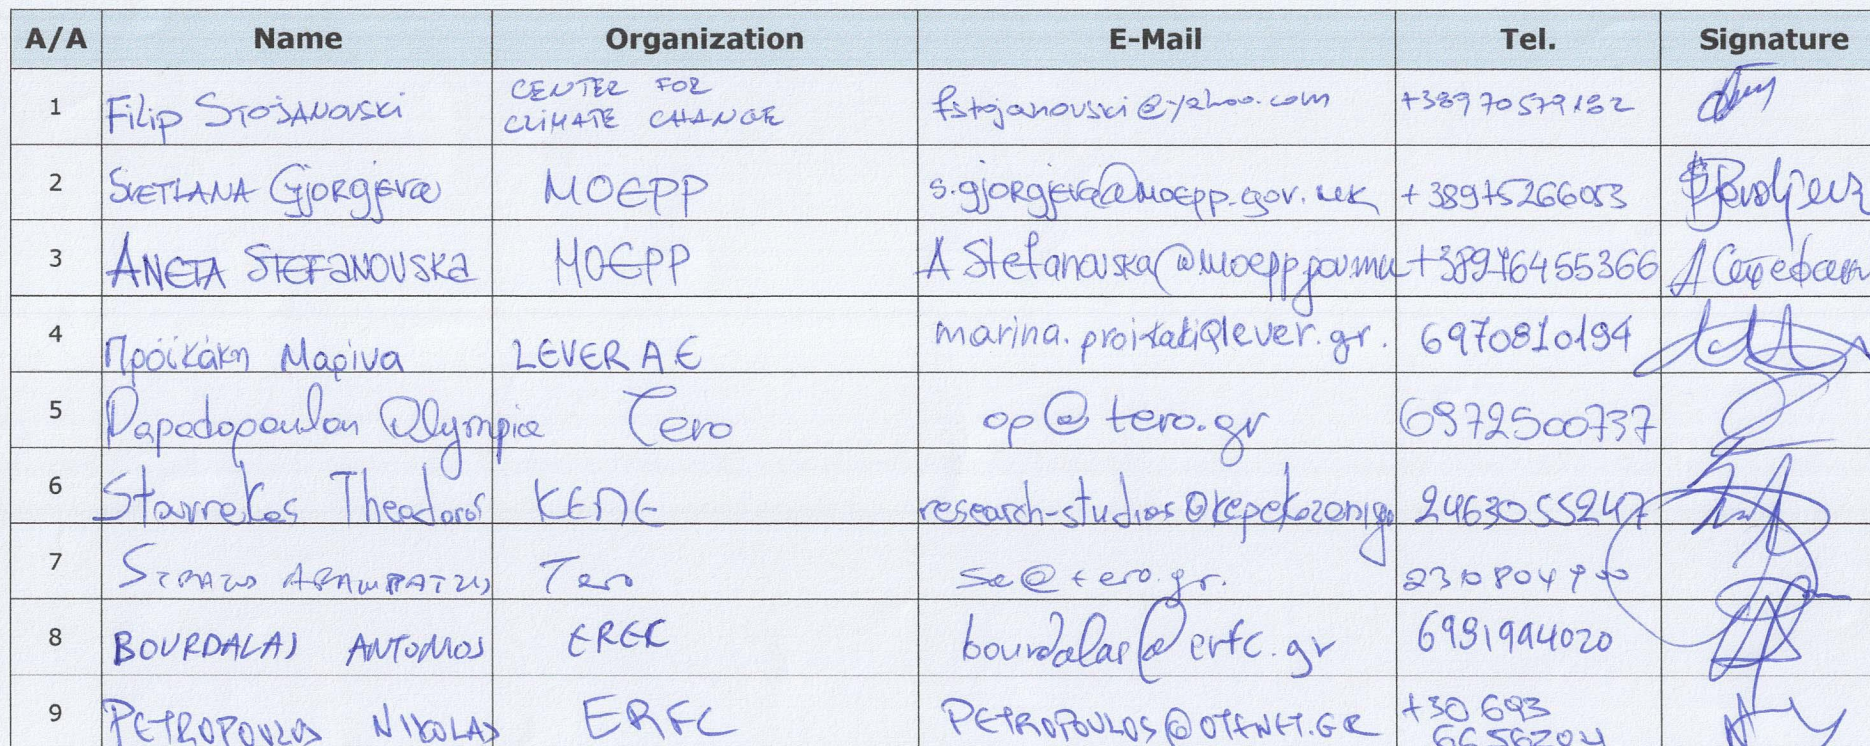 A/A Name Organization E-Mail Tel. Signature
1 Filip STOJANOVSKI CENTER FOR CLIMATE CHANGE fstojanovski@yahoo.com +38970579182
2 SVETLANA Gjorgjeva MOEPP s.gjorgjeva@moepp.gov.mk +38975266053
3 ANETA STEFANOVSKA MOEPP A.Stefanovska@moepp.gov.mk +38976455366
4 Προϊκάκη Μαρίνα LEVER A E marina.proikaki@lever.gr. 6970810194
5 Papadopoulou Olympia Tero op@tero.gr 6972500737
6 Theodoros ΚΕΠΕ 2463055247
7 Tero sa@tero.gr.
8 BOURDALAS ANTONIOS bourdalas@erfc.gr 6981994020
9 PETROPOULOS NIKOLAS ERFC PETROPOULOS@OTENET.GR +30 693
6656204